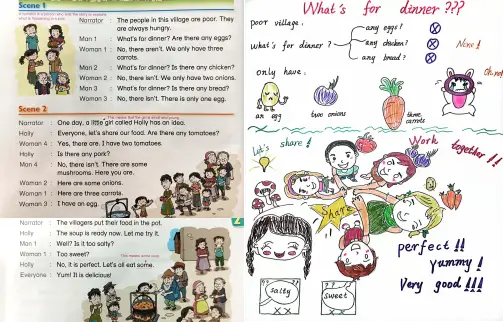 Scene 1
Narrator : The people in this village are poor. They
are always hungry.
Man 1 : What's for dinner? Are there any eggs?
Woman 1 : No, there aren't. We only have three
carrots.
Man 2 : What's for dinner? Is there any chicken?
Woman 2 : No, there isn't. We only have two onions.
Man 3 : What's for dinner? Is there any bread?
Woman 3 : No, there isn't. There is only one egg.
Scene 2
Narrator : One day, a little girl called Holly has an idea.
Holly : Everyone, let's share our food. Are there any tomatoes?
Woman 4 : Yes, there are. I have two tomatoes.
Holly : Is there any pork?
Man 4 : No, there isn't. There are some
mushrooms. Here you are.
Woman 2 : Here are some onions.
Woman 1 : Here are three carrots.
Woman 3 : I have an egg.
Narrator : The villagers put their food in the pot.
Holly : The soup is ready now. Let me try it.
Man 1 : Well? Is it too salty?
Woman 1 : Too sweet?
Holly : No, it is perfect. Let's all eat some.
Everyone : Yum! It is delicious!
2
What's for dinner ???
poor village :
any eggs?
What's for dinner ?
any chicken?
any bread?
None !
only have :
Oh no!
an egg
two onions
three
carrots
Let's share !
Work together !!
Share
perfect !!
Yummy !
Very good !!!
salty
sweet